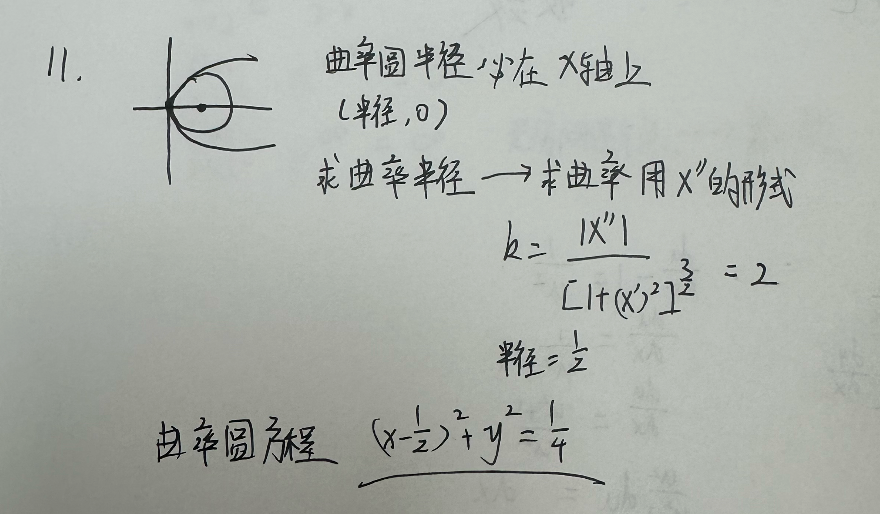 11.
曲率圆半径必在x轴上
(半径,0)
求曲率半径→求曲率用x″的形式
k=|x″|/[1+(x′)²]^(3/2)=2
半径=1/2
曲率圆方程 (x-1/2)²+y²=1/4